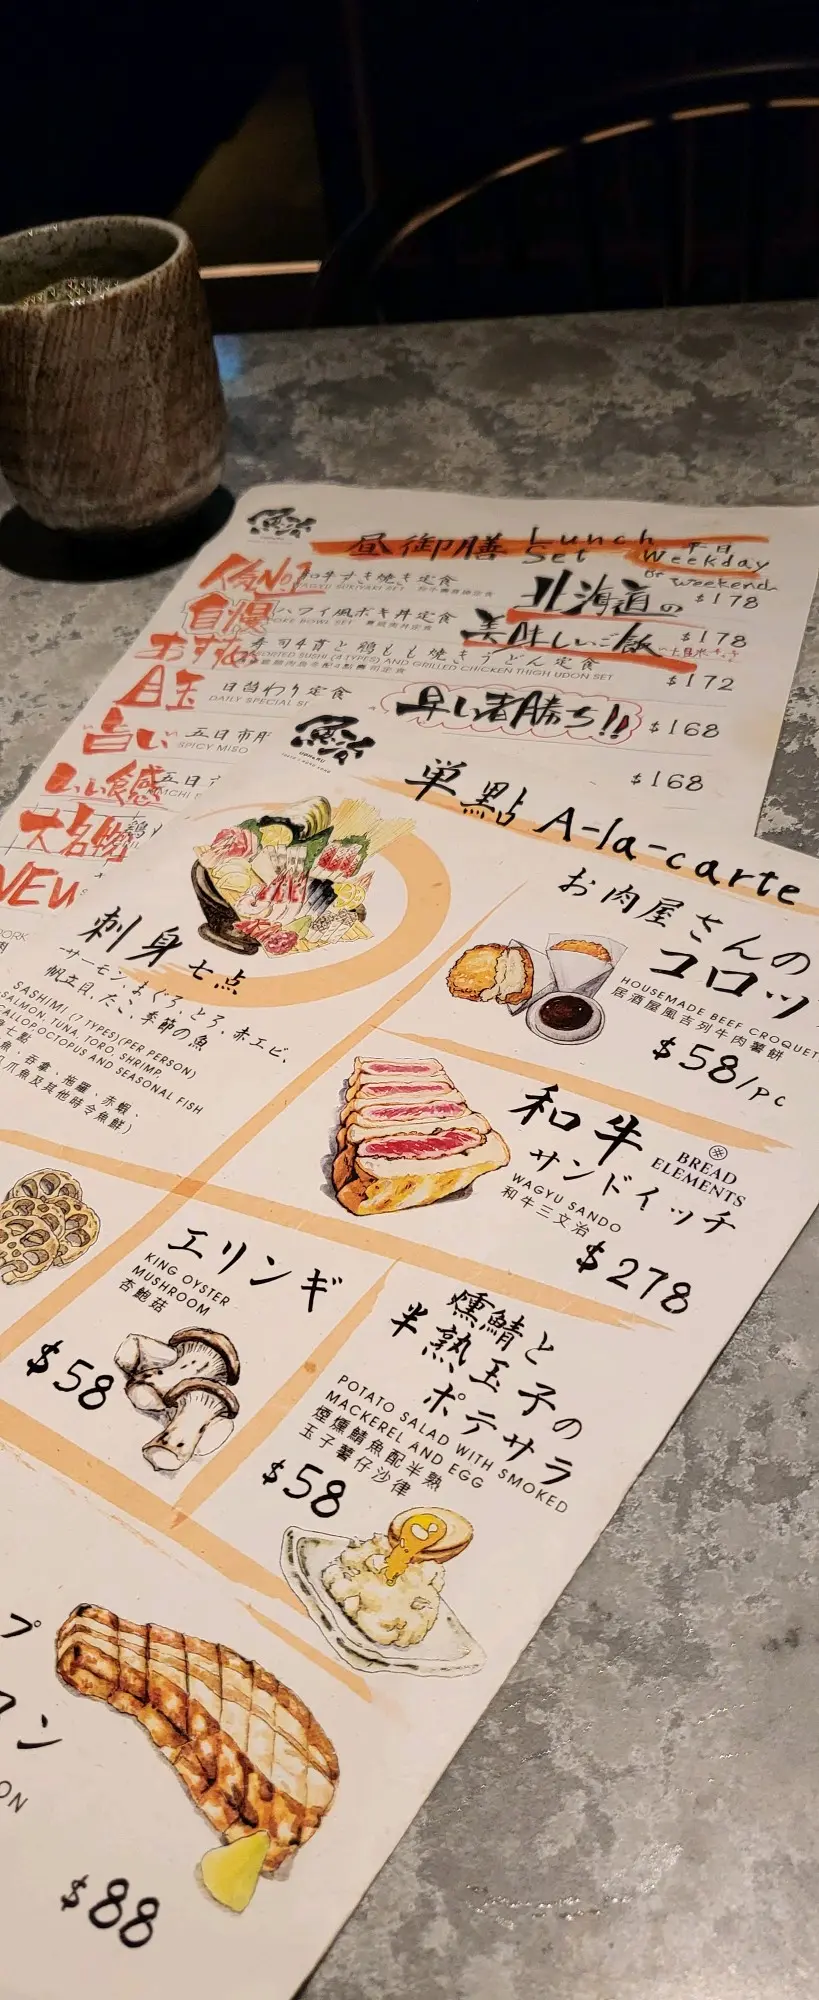 魚治
昼御膳 Lunch Set 平日 Weekday or weekend
人気No1
和牛すき焼き定食
WAGYU SUKIYAKI SET
$178
北海道の
自慢
ハワイ風ポキ丼定食
POKE BOWL SET
美味しいご飯
$178
おすすめ
寿司4貫と鶏もも焼きうどん定食
ASSORTED SUSHI (4 TYPES) AND GRILLED CHICKEN THIGH UDON SET
$172
目玉
日替わり定食
DAILY SPECIAL
早い者勝ち!!
$168
旨い
五日市
SPICY MISO
$168
いい食感
五日
KIMCHI
大名物
NEW
魚治
UOHARU
単點 A-la-carte
刺身 七点
サーモン、まぐろ、とろ、赤エビ、
帆立貝、たこ、季節の魚
SASHIMI (7 TYPES)(PER PERSON)
SALMON, TUNA, TORO, SHRIMP,
SCALLOP, OCTOPUS AND SEASONAL FISH
七點
魚、吞拿、拖羅、赤蝦、
八爪魚及其他時令魚鮮)
お肉屋さんの
コロッ
HOUSEMADE BEEF CROQUET
居酒屋風吉列牛肉薯餅
$58/pc
和牛
サンドイッチ
BREAD
ELEMENTS
WAGYU SANDO
和牛三文治
$278
エリンギ
KING OYSTER
MUSHROOM
杏鮑菇
$58
燻鯖と
半熟玉子の
ポテサラ
POTATO SALAD WITH SMOKED
MACKEREL AND EGG
煙燻鯖魚配半熟
玉子薯仔沙律
$58
プ
ン
ON
$88